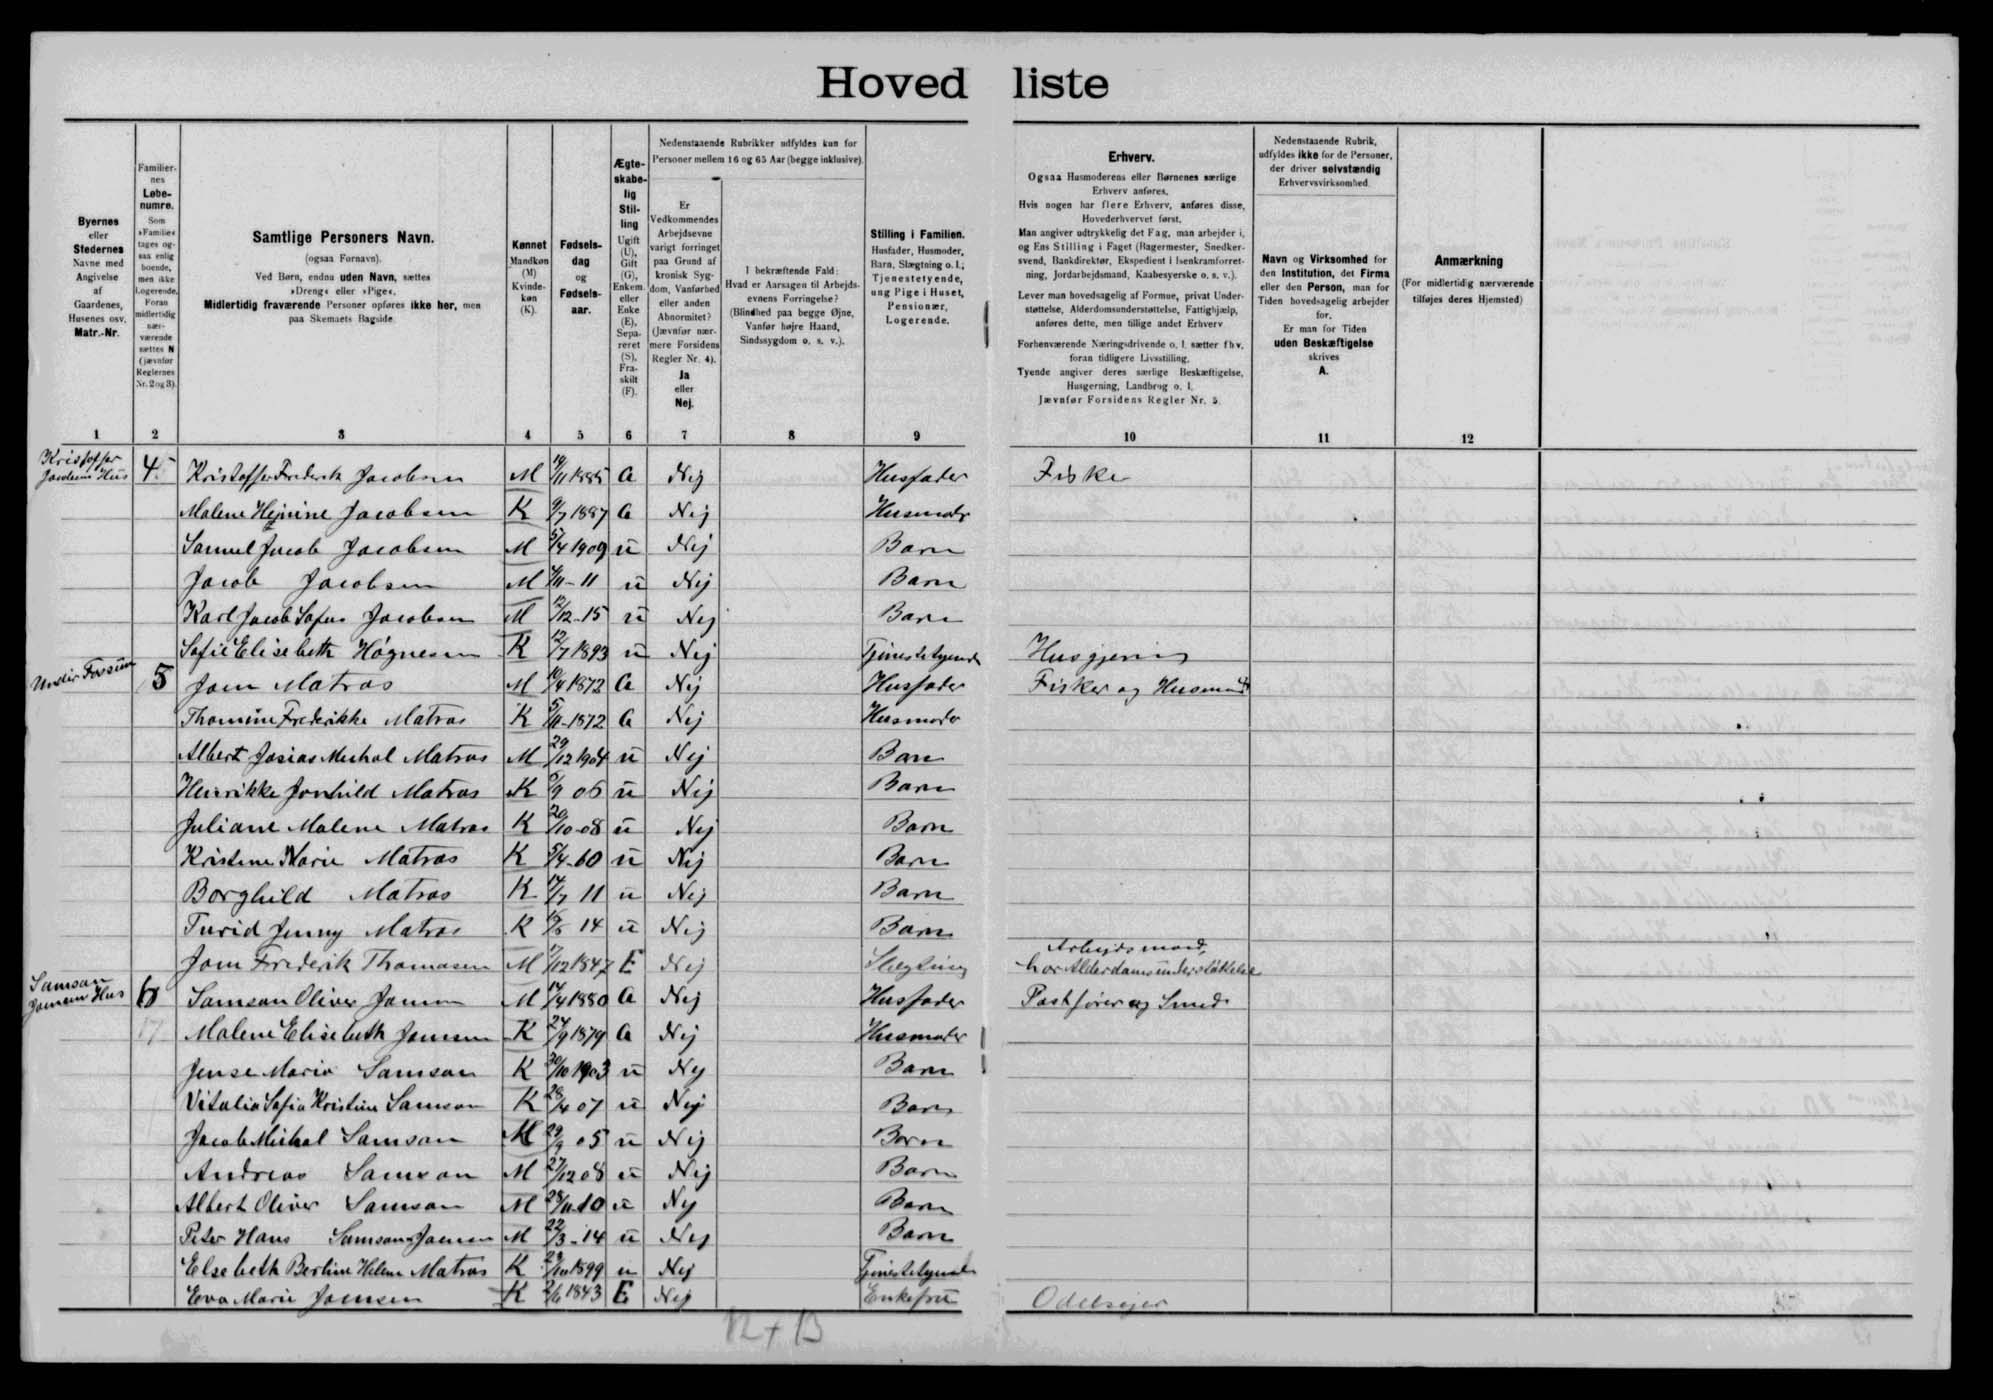 Hovedliste
Byernes
eller
Stedernes
Navne med
Angivelse
af
Gaardenes,
Husenes osv.
Matr.-Nr.
Familier-
nes
Løbe-
numre.
Som
»Familie«
tages og-
saa enlig
boende,
men ikke
Logerende.
Foran
midlertidig
nær-
værende
sættes N
(jævnfør
Reglernes
Nr. 2 og 3).
Samtlige Personers Navn.
(ogsaa Fornavn).
Ved Børn, endnu uden Navn, sættes
»Dreng« eller »Pige«.
Midlertidig fraværende Personer opføres ikke her, men
paa Skemaets Bagside.
Kønnet
Mandkøn
(M)
Kvinde-
køn
(K).
Fødsels-
dag
og
Fødsels-
aar.
Ægte-
skabe-
lig
Stil-
ling
Ugift
(U),
Gift
(G),
Enkem.
eller
Enke
(E),
Sepa-
reret
(S),
Fra-
skilt
(F).
Nedenstaaende Rubrikker udfyldes kun for
Personer mellem 16 og 65 Aar (begge inklusive).
Er
Vedkommendes
Arbejdsevne
varigt forringet
paa Grund af
kronisk Syg-
dom, Vanførhed
eller anden
Abnormitet?
(Jævnfør nær-
mere Forsidens
Regler Nr. 4).
Ja
eller
Nej.
I bekræftende Fald:
Hvad er Aarsagen til Arbejds-
evnens Forringelse?
(Blindhed paa begge Øjne,
Vanfør højre Haand,
Sindssygdom o. s. v.).
Stilling i Familien.
Husfader, Husmoder,
Barn, Slægtning o. l.;
Tjenestetyende,
ung Pige i Huset,
Pensionær,
Logerende.
Erhverv.
Ogsaa Husmoderens eller Børnenes særlige
Erhverv anføres.
Hvis nogen har flere Erhverv, anføres disse,
Hovederhvervet først.
Man angiver udtrykkelig det Fag, man arbejder i,
og Ens Stilling i Faget (Bagermester, Snedker-
svend, Bankdirektør, Ekspedient i Isenkramforret-
ning, Jordarbejdsmand, Kaabesyerske o. s. v.).
Lever man hovedsagelig af Formue, privat Under-
støttelse, Alderdomsunderstøttelse, Fattighjælp,
anføres dette, men tillige andet Erhverv
Forhenværende Næringsdrivende o. l. sætter fhv.
foran tidligere Livsstilling.
Tyende angiver deres særlige Beskæftigelse,
Husgerning, Landbrug o. l.
Jævnfør Forsidens Regler Nr. 5.
Nedenstaaende Rubrik,
udfyldes ikke for de Personer,
der driver selvstændig
Erhvervsvirksomhed.
Navn og Virksomhed for
den Institution, det Firma
eller den Person, man for
Tiden hovedsagelig arbejder
for.
Er man for Tiden
uden Beskæftigelse
skrives
A.
Anmærkning
(For midlertidig nærværende
tilføjes deres Hjemsted)
1 2 3 4 5 6 7 8 9 10 11 12
Kristoffer
Jacobsens Hus 4 Kristoffer Frederik Jacobsen M 19/11 1885 G Nej Husfader Fisker
Malene Hejnine Jacobsen K 9/7 1887 G Nej Husmoder
Samuel Jacob Jacobsen M 5/4 1909 u Nej Barn
Jacob Jacobsen M 4/11 - 11 u Nej Barn
Karl Jacob Sofus Jacobsen M 12/12 - 15 u Nej Barn
Sofie Elisebeth Høgnesen K 12/7 1893 u Nej Tjenestetyende Husgjerning
Under Fossum 5 Joen Matras M 10/4 1872 G Nej Husfader Fisker og Husmand
Thomine Frederikke Matras K 5/11 - 1872 G Nej Husmoder
Albert Josias Michal Matras M 29/12 1904 u Nej Barn
Henrikke Jonhild Matras K 6/9 06 u Nej Barn
Juliane Malene Matras K 20/10 - 08 u Nej Barn
Kristine Marie Matras K 5/4 - 60 u Nej Barn
Borghild Matras K 14/7 11 u Nej Barn
Turid Jenny Matras K 14 u Nej Barn
Arbejdsmand,
Joen Frederik Thomasen M 1/12 1847 E Nej Slægtning har Alderdomsunderstøttelse
Samson
Joensens Hus 6 Samson Oliver Joensen M 14/4 1880 G Nej Husfader Postfører og Smed
17 Malene Elisebeth Joensen K 24/9 1879 G Nej Husmoder
Jense Maria Samson K 30/10 1903 u Nej Barn
Vitalia Sofia Kristine Samson K 28/4 07 u Nej Barn
Jacob Michal Samson M 29/9 05 u Nej Barn
Andreas Samson M 27/12 08 u Nej Barn
Albert Oliver Samson M 28/11 - 10 u Nej Barn
Peter Hans Samson Joensen M 22/3 - 14 u Nej Barn
Elsebeth Bertine Helene Matras K 1899 u Nej Tjenestetyende
Eva Marie Joensen K 2/6 1843 E Nej Enkefru Odelsejer
12 + 13